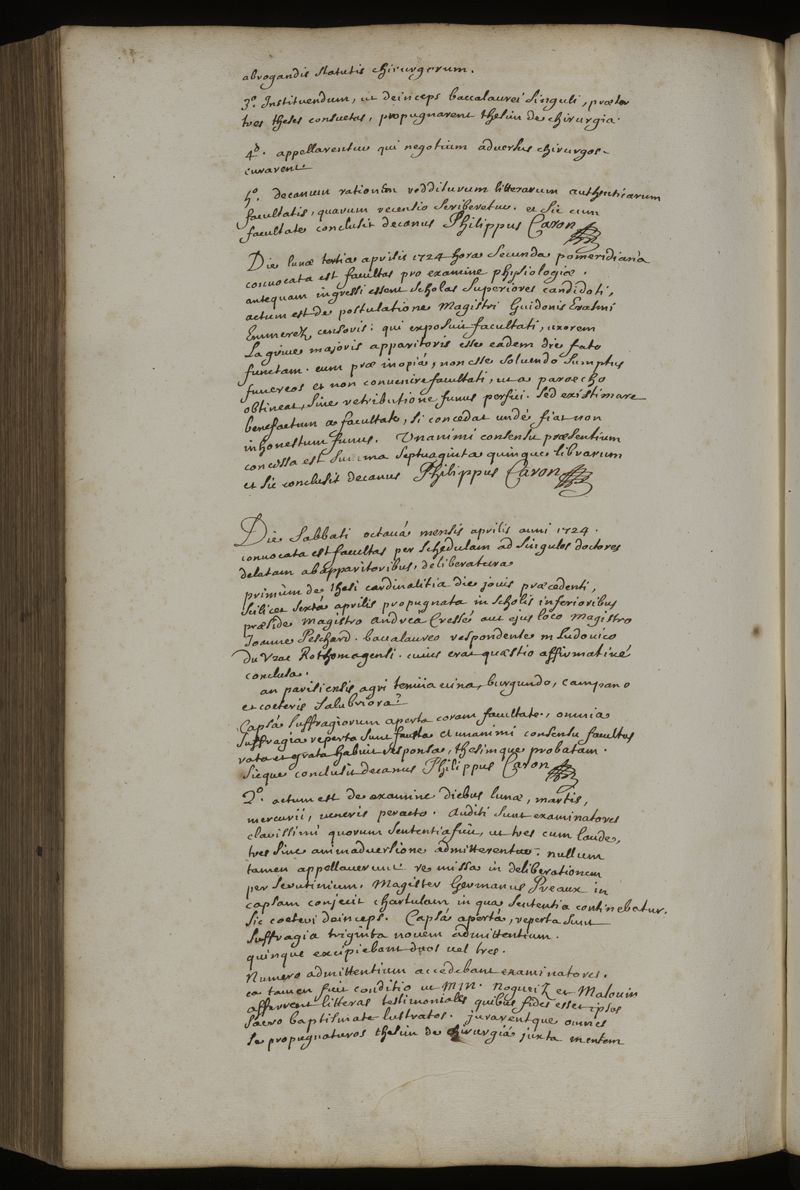 abrogandis statutis chirurgorum.
3°. Instituendum, ut deinceps baccalaurei singuli, præter
tres theses consuetas, propugnarent thesim de chirurgia.
4°. appellarentur qui negotium adversus chirurgos
curarent
5°. decanum rationem redditurum litterarum authenticarum
facultatis, quarum recensio scriberetur. et sic cum
facultate conclusit decanus Philippus Caron
Die lunæ tertia aprilis 1724 hora secunda pomeridiana
convocata est facultas pro examine physiologiæ.
antequam ingressi essent scholas superiores candidati,
actum est de postulatione Magistri Guidonis Erasmi
Emmerez censoris: qui exposuit facultati, uxorem
majoris apparitoris esse eadem die fato
functam. eum præ inopiâ, non esse solvendo sumptus
funereos et non convenire facultati, ut a parocho
obtineat, sine retributione funus perfici. sed existimare
benefactum a facultate, si concedat unde fiat non
inhonestum funus. Unanimi consensu præsentium
concessa est summa septuaginta quinque librarum
et sic conclusit decanus Philippus Caron
Die Sabbati octavâ mensis aprilis anni 1724.
convocata est facultas per schedulam ad singulos doctores
delatam ab apparitoribus, deliberatura
primùm de thesi cardinalitia die jovis præcedenti,
scilicet sextâ aprilis propugnata in scholis inferioribus
præside Magistro Andreâ Cressé aut ejus loco Magistro
Joanne Peschard. baccalaureo respondente m Ludovico
Du Vrac Rothomagensi. cuius erat quæstio affirmativé
conclusa.
an parisiensis agri tenuia vina, burgundo, campano
et coeteris salubriora?
Capsâ suffragiorum aperta coram facultate, omnia
suffragia reperta sunt fausta et unanimi consensu facultas
rata et grata habuit responsa, thesimque probatam.
sicque conclusit decanus Philippus Caron
2°. actum est de examine diebus lunæ, martis,
mercurii, veneris peracto. Auditi sunt examinatores
clarissimi quorum sententia fuit, ut tres cum laude,
tres sine animadversione admitterentur. nullum
tamen appellaverunt re missa in deliberationem
per scrutinium. Magister Germanus Preaux in
capsam conjecit chartulam in qua sententia continebatur.
sic coeteri deinceps. Capsâ apertâ, reperta sunt
suffragia triginta novem admittentium.
quinque excipiebant duos vel tres.
Numero admittentium accedebant examinatores.
ea tamen fuit conditio ut MM. Noguez et Malouin
afferrent litteras testimoniales quibus fides esset ipsos
sacro baptismate lustratos. jurarentque omnes
se propugnaturos thesim de chirurgiâ juxta mentem